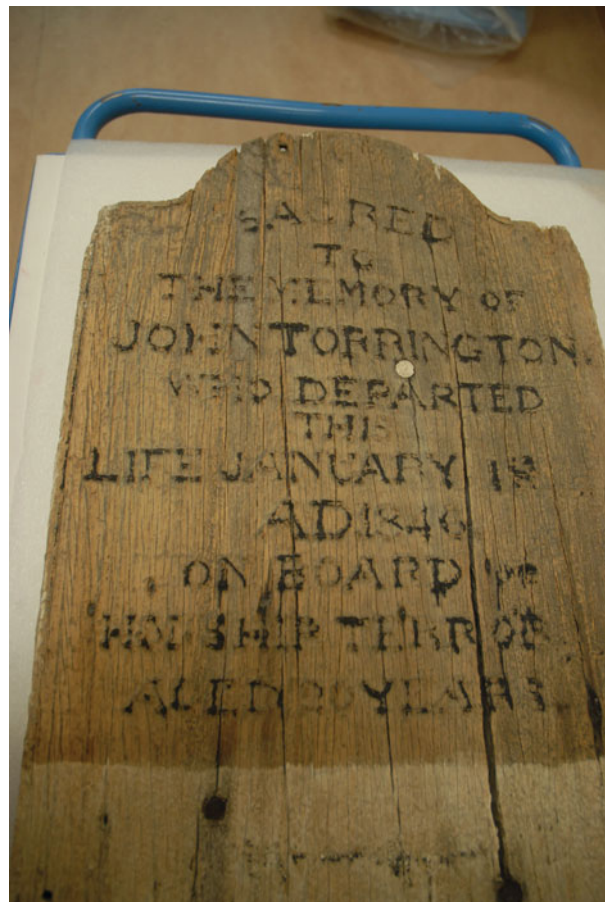 SACRED
TO
THE MEMORY OF
JOHN TORRINGTON.
WHO DEPARTED
THIS
LIFE JANUARY 1st
AD. 1846.
ON BOARD
HM SHIP TERROR
AGED 20 YEARS.